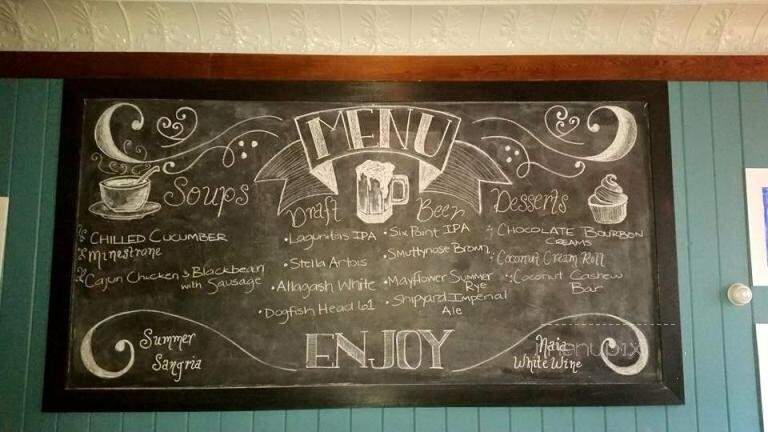 MENU
Soups
CHILLED CUCUMBER
Minestrone
Cajun Chicken & Blackbean
with Sausage
Draft
• Lagunitas IPA
• Stella Artois
• Allagash White
• Dogfish Head 61
Beer
• Six Point IPA
• Smuttynose Brown
• Mayflower Summer
Rye
• Shipyard Imperial
Ale
Desserts
CHOCOLATE BOURBON
CREAMS
Coconut Cream Roll
Coconut Cashew
Bar
Summer
Sangria
ENJOY
Naia
White Wine
menupix